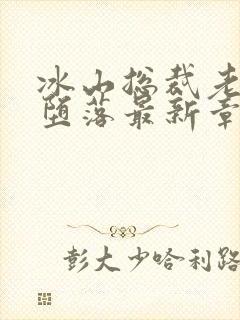 冰山总裁老
堕落最新章
彭大少哈利路